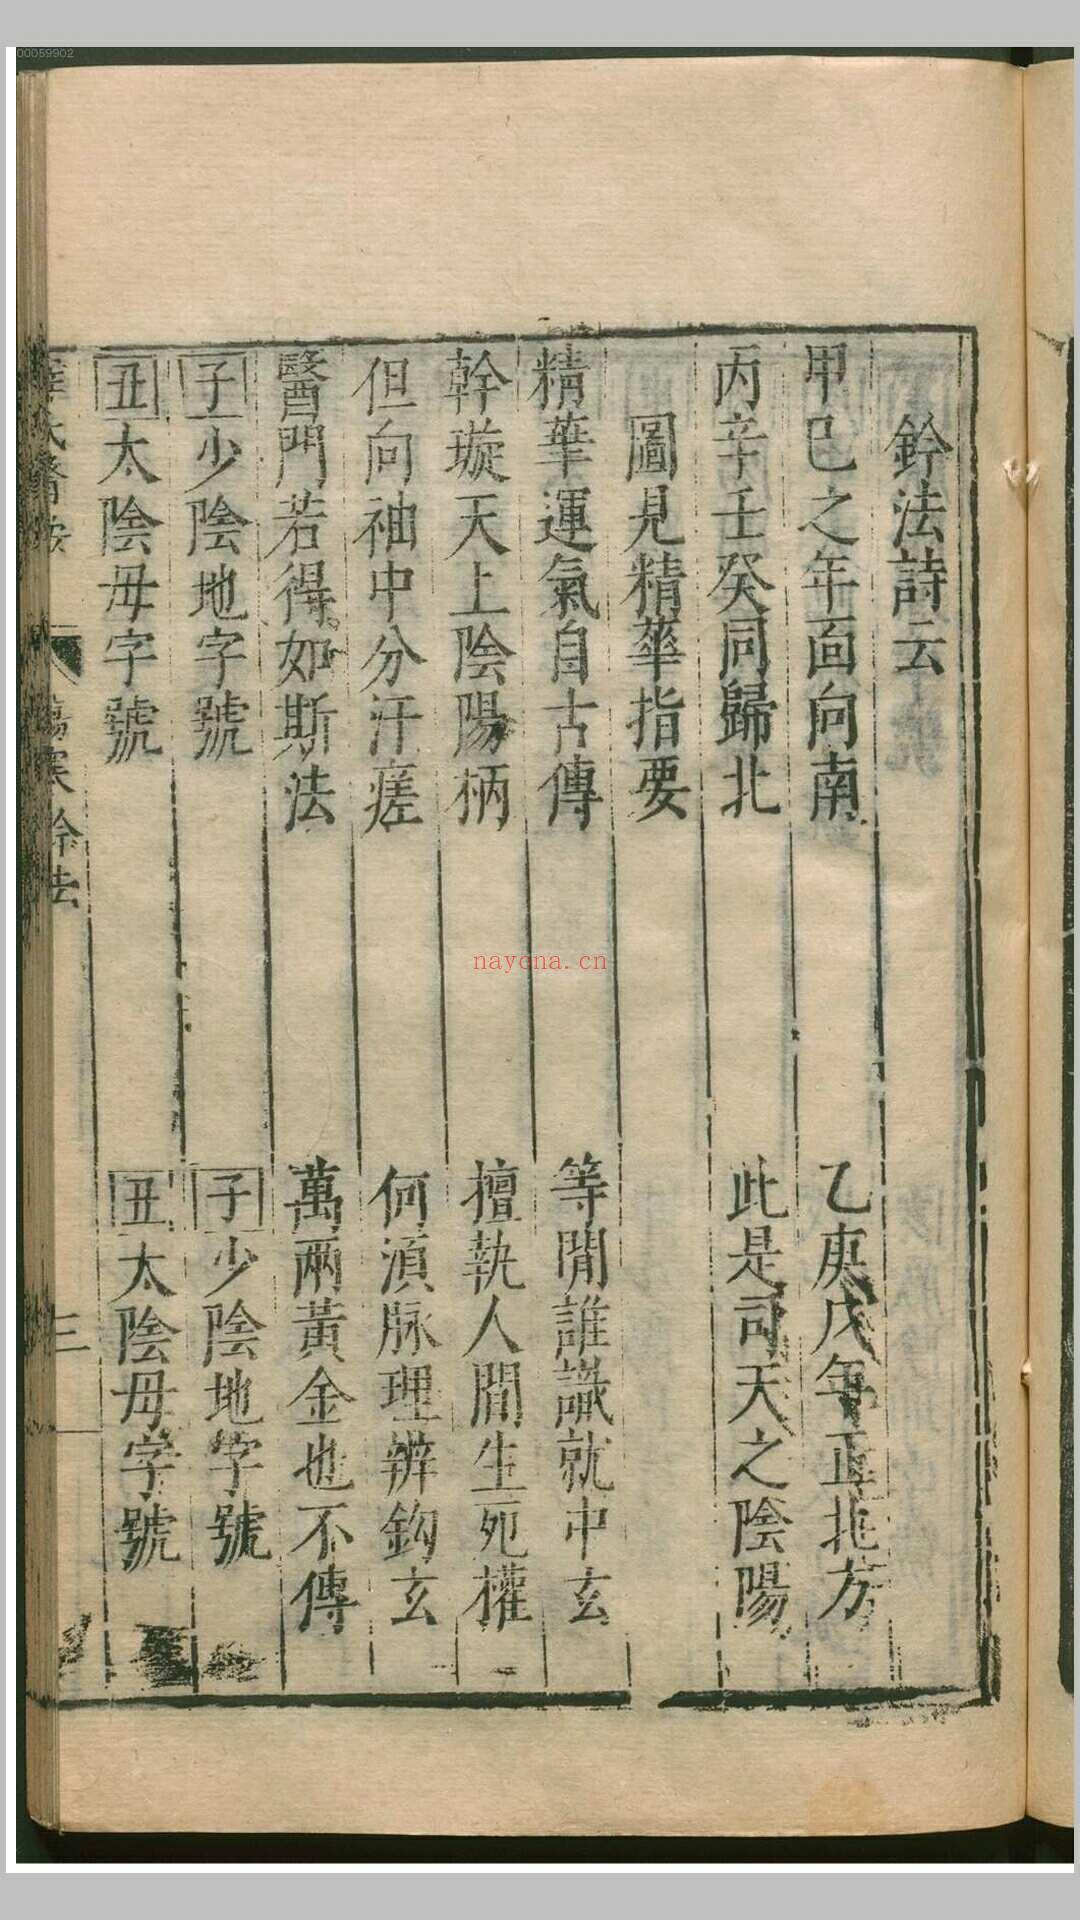 00059902
鈐法詩云
甲己之年面向南　乙庚戊年正北方
丙辛壬癸同歸北　此是司天之陰陽
圖見精華指要
精華運氣自古傳　等閒誰識就中玄
幹璇天上陰陽柄　擅執人間生死權
但向袖中分汗瘥　何須脉理辨鈎玄
醫門若得如斯法　萬兩黃金也不傳
子少陰地字號　子少陰地字號
丑太陰毋字號　丑太陰毋字號
三
nayona.cn